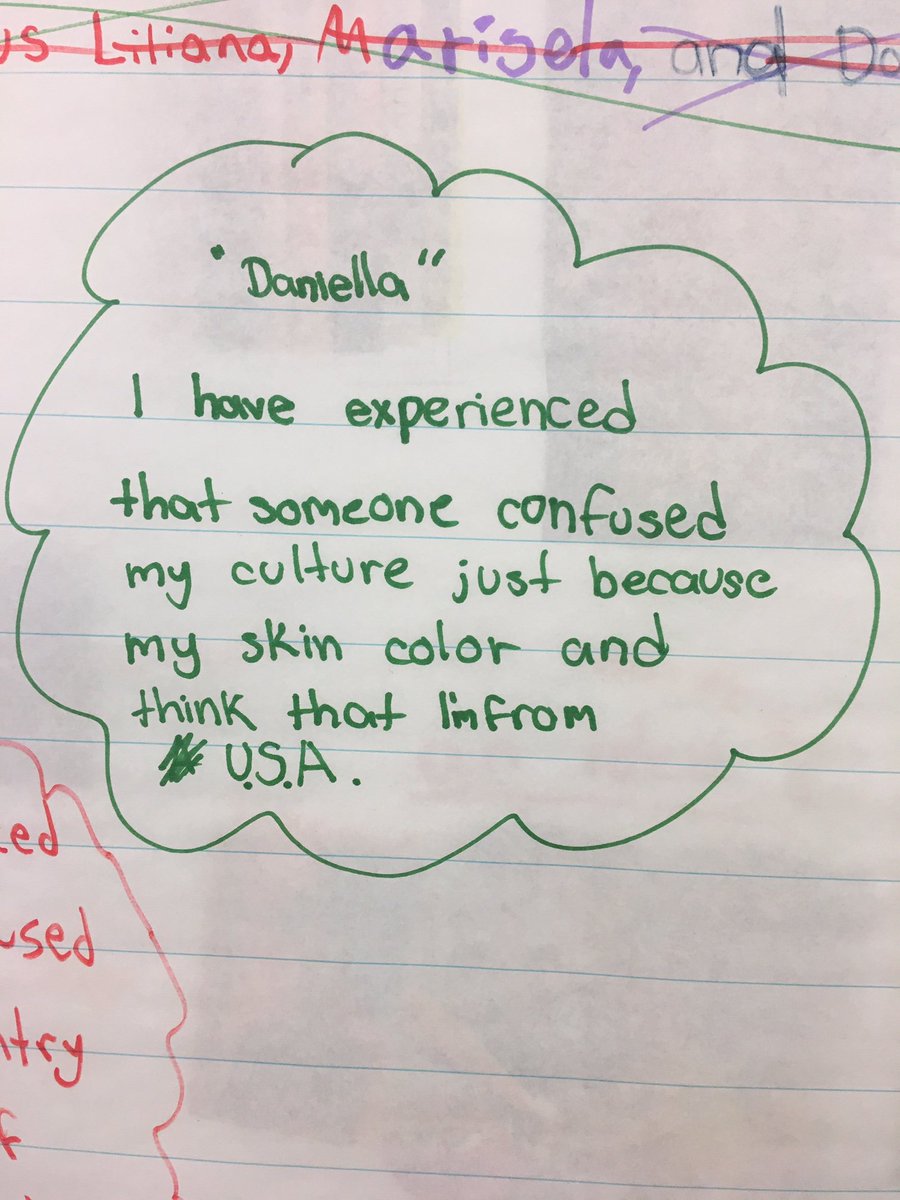 us Liliana, Marisela, and Da
"Daniella"
I have experienced
that someone confused
my culture just because
my skin color and
think that I'm from
U.S.A.
ed
used
ntry
f